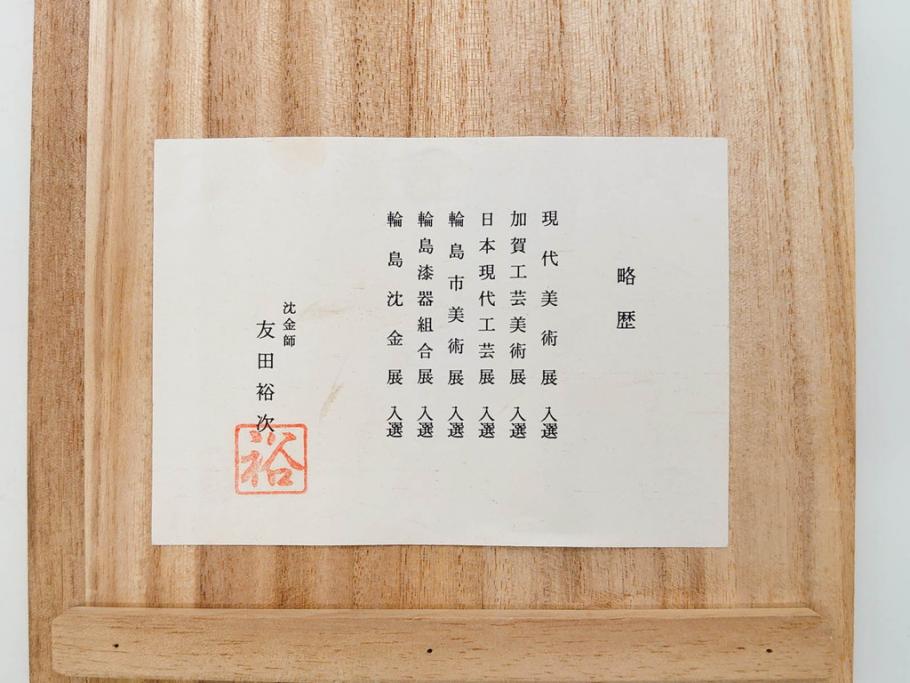 略歴
現代美術展 入選
加賀工芸美術展 入選
日本現代工芸展 入選
輪島市美術展 入選
輪島漆器組合展 入選
輪島沈金展 入選
沈金師
友田裕次
裕